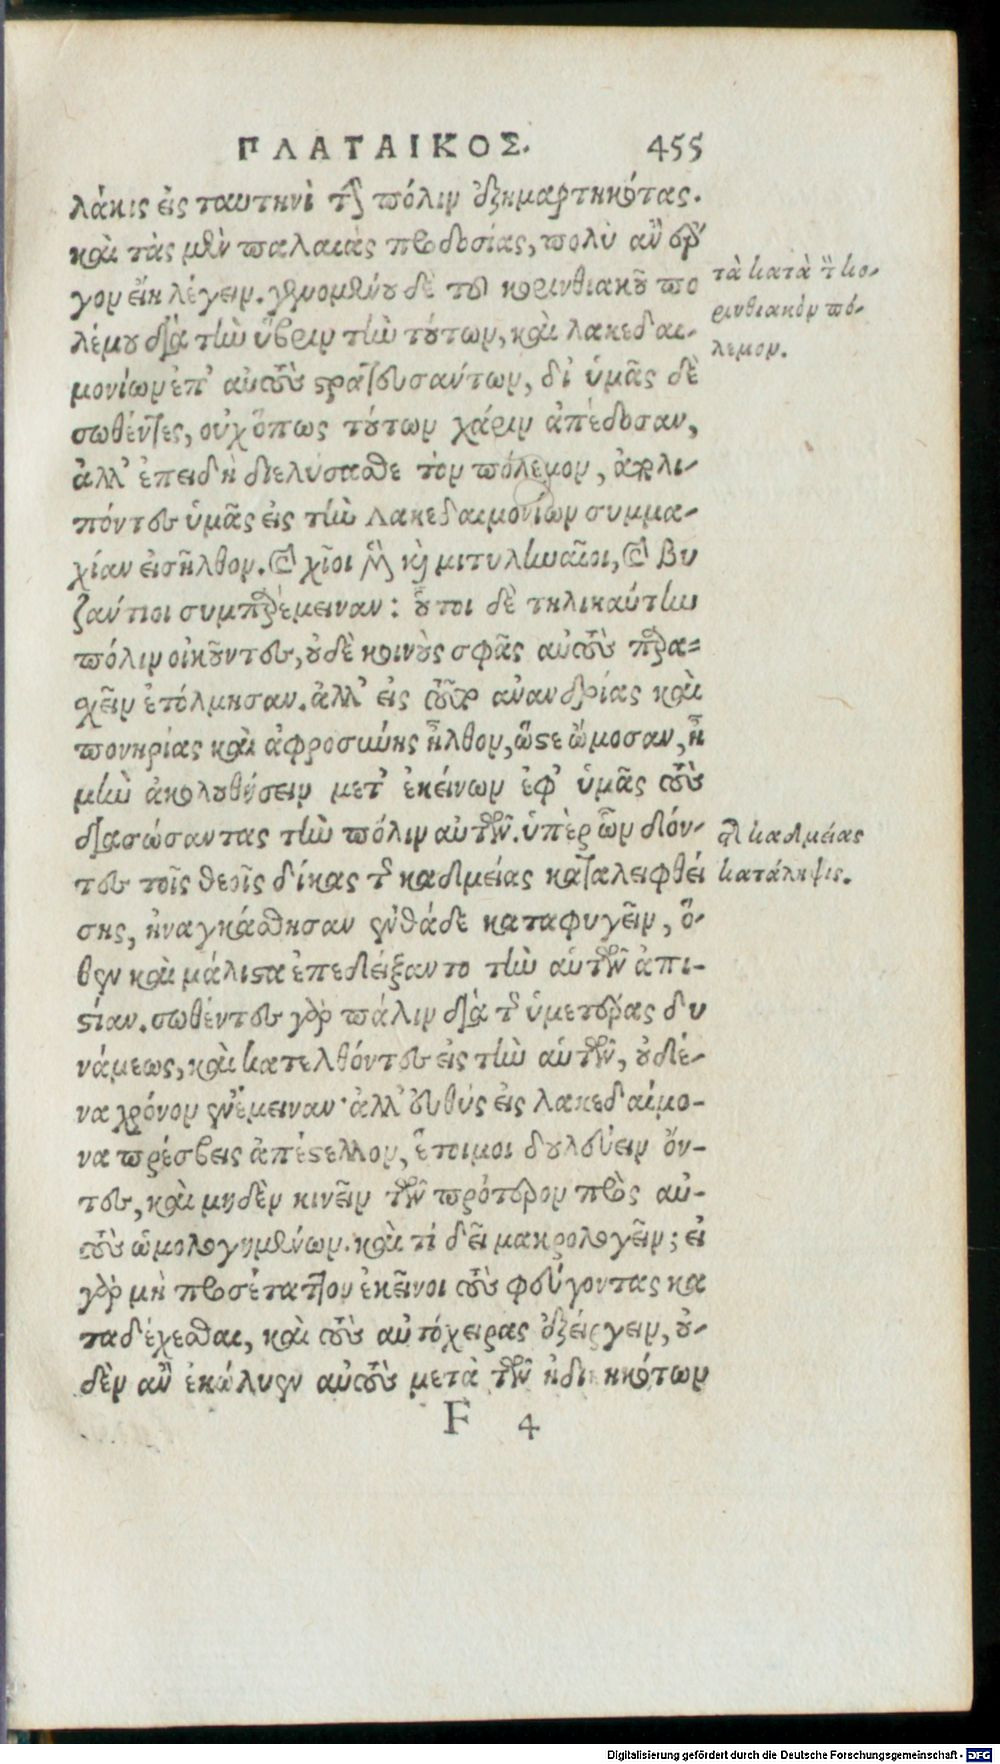 ΠΛΑΤΑΙΚΟΣ. 455
λάκις εἰς ταυτηνὶ τὴν πόλιν ἐξημαρτηκότας.
καὶ τὰς μὲν παλαιὰς προδοσίας, πολὺ ἂν ἔρ
γον εἴη λέγειν. γενομένου δὲ τοῦ κορινθιακοῦ πο
λέμου διὰ τὴν ὕβριν τὴν τούτων, καὶ λακεδαι-
μονίων ἐπ' αὐτοὺς στρατευσάντων, δι' ὑμᾶς δὲ
σωθέντες, οὐχ ὅπως τούτων χάριν ἀπέδοσαν,
ἀλλ' ἐπειδὴ διελύσασθε τὸν πόλεμον, ἀπολι-
πόντες ὑμᾶς εἰς τὴν Λακεδαιμονίων συμμα-
χίαν εἰσῆλθον. καὶ χῖοι μὲν καὶ μιτυληναῖοι, καὶ βυ
ζάντιοι συμπαρέμειναν: οὗτοι δὲ τηλικαύτην
πόλιν οἰκοῦντες, οὐδὲ κοινοὺς σφᾶς αὐτοὺς παρα-
χεῖν ἐτόλμησαν. ἀλλ' εἰς τοῦτο ἀνανδρίας καὶ
πονηρίας καὶ ἀφροσύνης ἦλθον, ὥστε ὤμοσαν, ἦ
μὴν ἀκολουθήσειν μετ' ἐκείνων ἐφ' ὑμᾶς τοὺς
διασώσαντας τὴν πόλιν αὐτῶν. ὑπὲρ ὧν διόν-
τες τοῖς θεοῖς δίκας τῆς καδμείας καταλειφθεί
σης, ἠναγκάσθησαν ἐνθάδε καταφυγεῖν, ὅ-
θεν καὶ μάλιστα ἐπεδείξαντο τὴν αὑτῶν ἀπι-
στίαν. σωθέντες γὰρ πάλιν διὰ τῆς ὑμετέρας δυ
νάμεως, καὶ κατελθόντες εἰς τὴν αὑτῶν, οὐδέ-
να χρόνον ἐνέμειναν· ἀλλ' εὐθὺς εἰς λακεδαίμο-
να πρέσβεις ἀπέστελλον, ἕτοιμοι δουλεύειν ὄν-
τες, καὶ μηδὲν κινεῖν τῶν πρότερον πρὸς αὐ-
τοὺς ὡμολογημένων. καὶ τί δεῖ μακρολογεῖν; εἰ
γὰρ μὴ προσέταττον ἐκεῖνοι τοὺς φεύγοντας κα
ταδέχεσθαι, καὶ τοὺς αὐτόχειρας ἐξείργειν, οὐ-
δὲν ἂν ἐκώλυεν αὐτοὺς μετὰ τῶν ἠδικηκότων
F 4
τὰ κατὰ τὸν κο-
ρινθιακὸν πό-
λεμον.
τῆς καδμείας
κατάληψις.
Digitalisierung gefördert durch die Deutsche Forschungsgemeinschaft - DFG